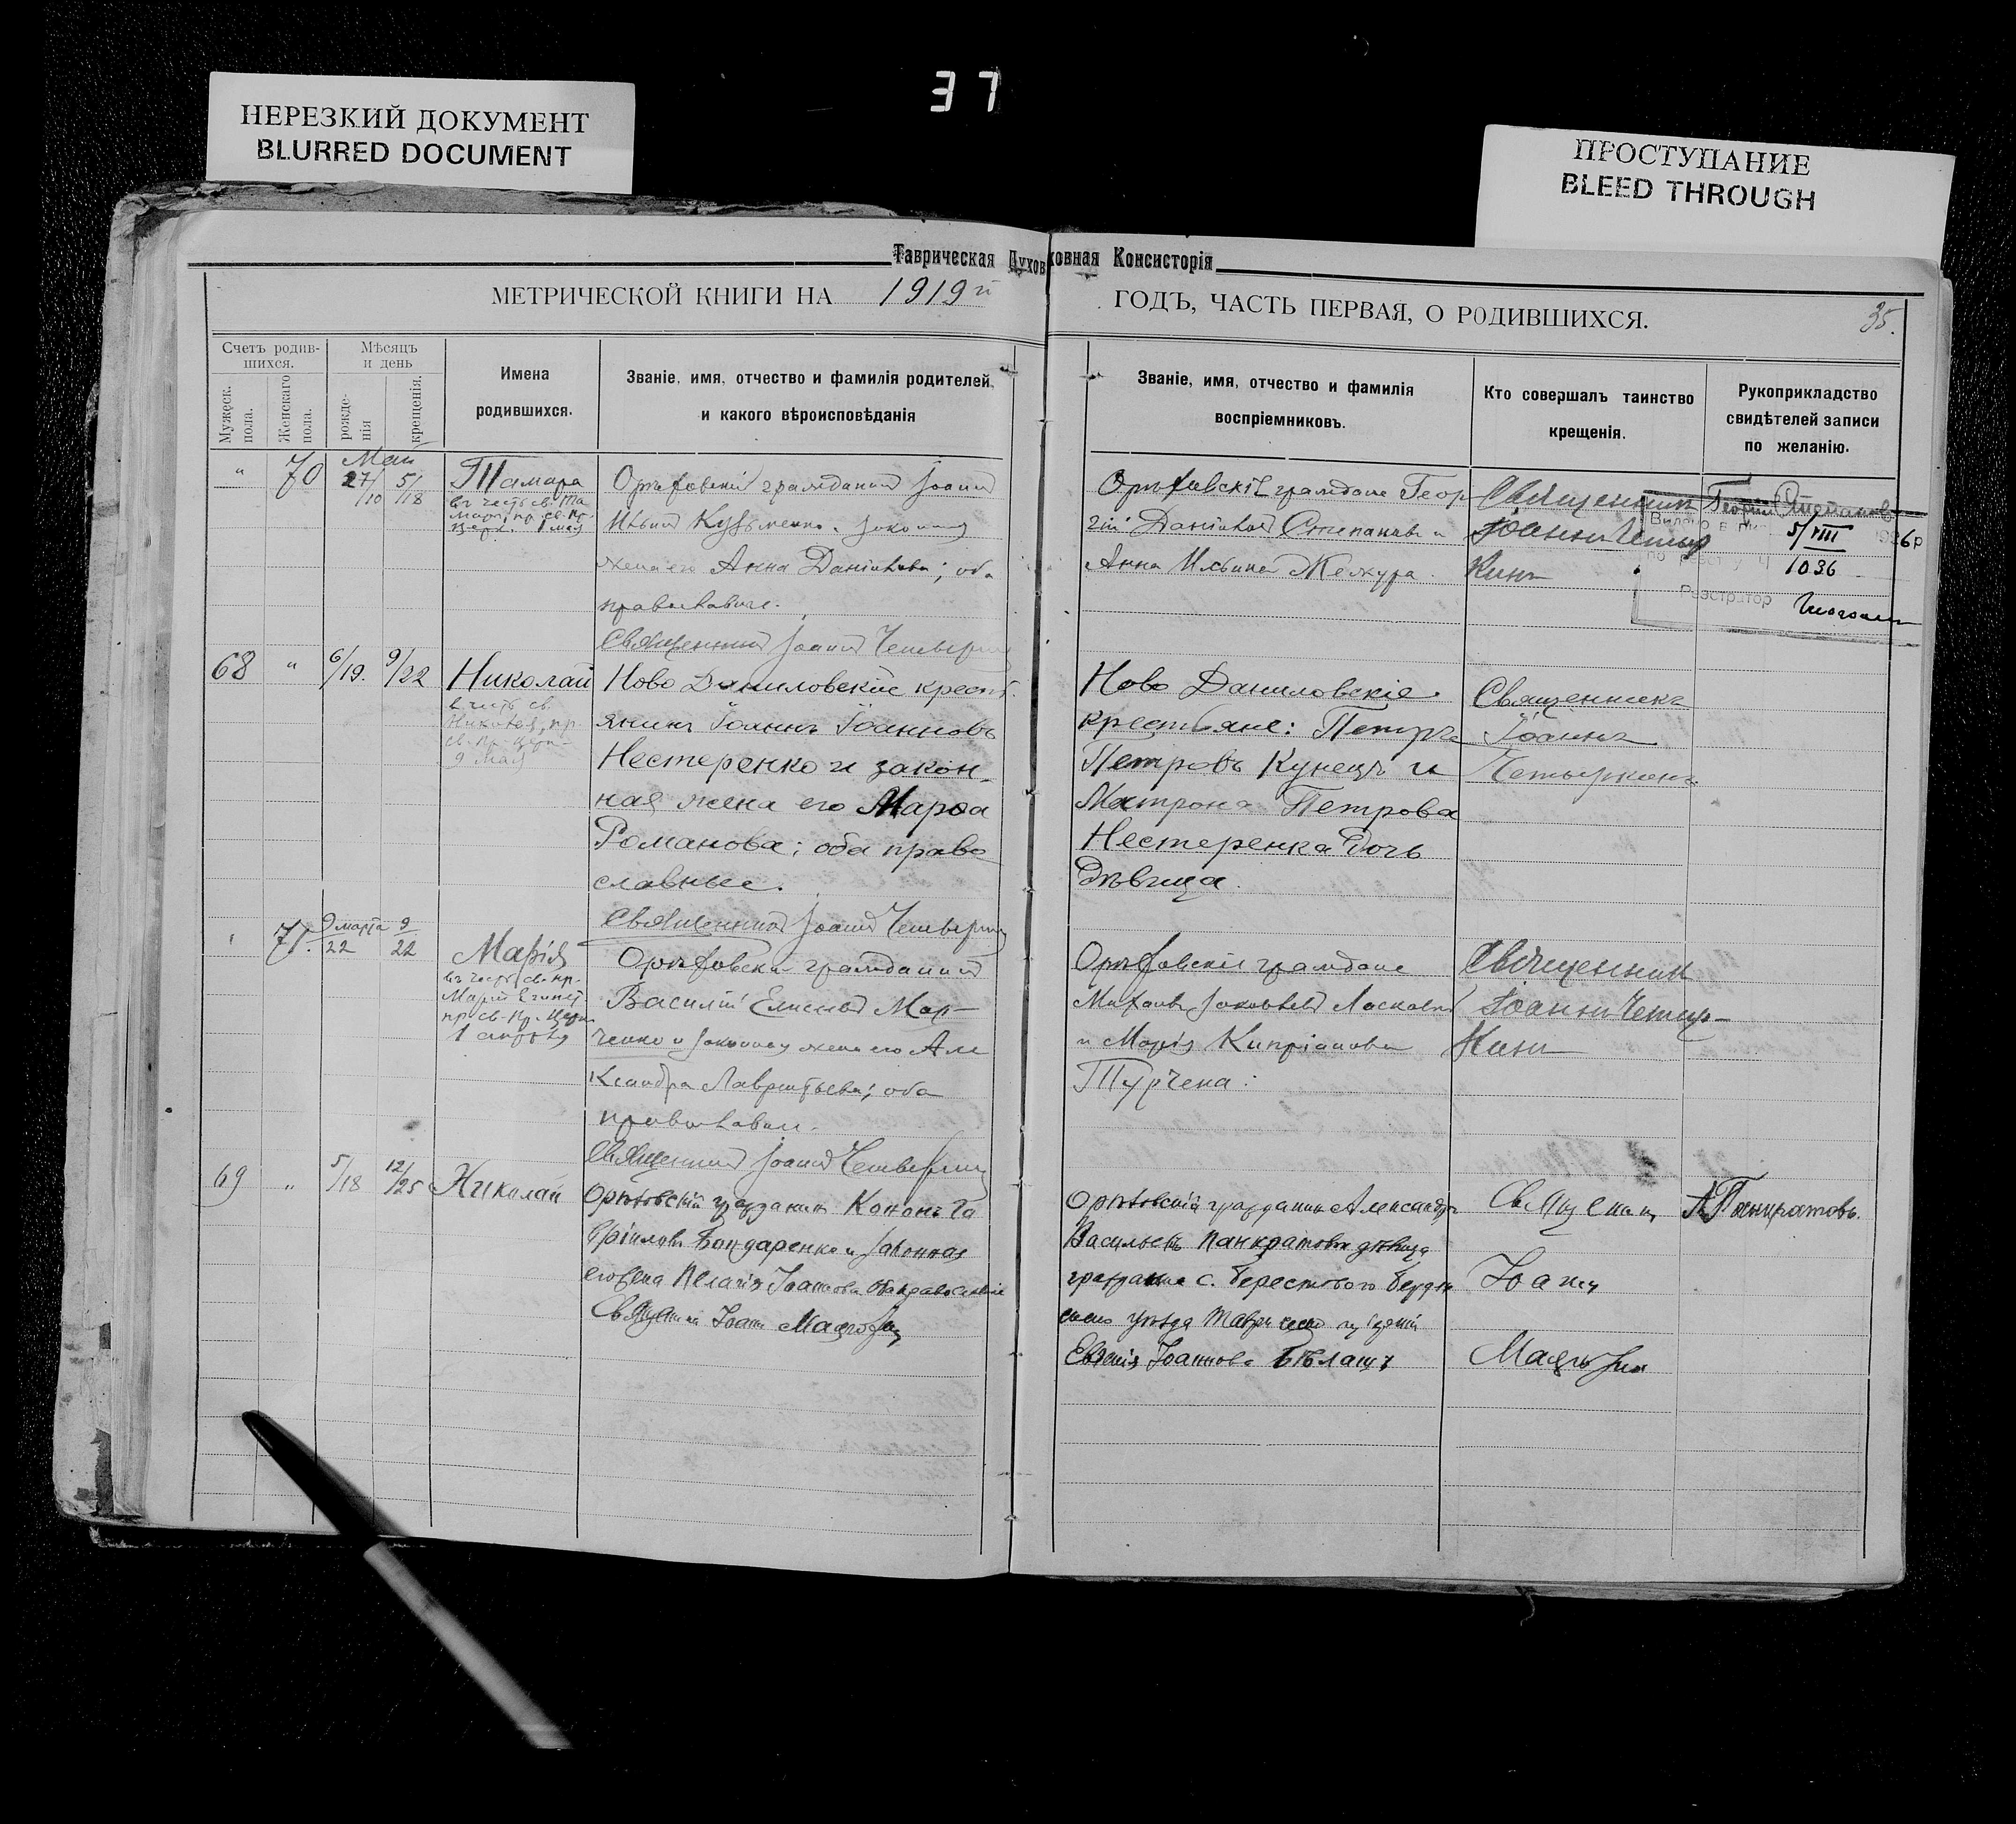 37
НЕРЕЗКИЙ ДОКУМЕНТ
BLURRED DOCUMENT
ПРОСТУПАНИЕ
BLEED THROUGH
Таврическая Духовная Консисторія
МЕТРИЧЕСКОЙ КНИГИ НА 1919й
ГОДЪ, ЧАСТЬ ПЕРВАЯ, О РОДИВШИХСЯ.
35.
Счетъ родив-
шихся.
Мужеск. пола.
Женскаго пола.
Мѣсяцъ
и день
рожде-
нія
крещенія.
Имена
родившихся.
Званіе, имя, отчество и фамилія родителей,
и какого вѣроисповѣданія
Званіе, имя, отчество и фамилія
воспріемниковъ.
Кто совершалъ таинство
крещенія.
Рукоприкладство
свидѣтелей записи
по желанію.
Май
" 70 27/10 5/18 Тамара
въ честь св. Та
1 мая
Орѣховскій гражданинъ Іоаннъ
Ильинъ Кузьменко и законная
жена его Анна Даніилова; оба
православные.
Священникъ Іоаннъ
Орѣховскіе граждане Геор
гій Даніиловъ Степановъ и
Анна Ильина Межура.
Священникъ
Іоаннъ
Георгій Степановъ
5/VIII
1036
Реєстратор
68 " 6/19. 9/22 Николай
в честь св.
Николая, пр.
9 Мая
Ново Даниловскіе крест
янинъ Іоаннъ Іоанновъ
Нестеренко и закон-
ная жена его Марѳа
Романова; оба право
славные.
Священникъ Іоаннъ
Ново Даниловскіе
крестьяне: Петръ
Петровъ Кунецъ и
Матрона Петрова
Нестеренка дочь
дѣвица.
Священникъ
Іоаннъ
71. 9 марта 22 9/22 Марія
въ честь св. пр.
Маріи Египет
Орѣховскій гражданинъ
Василій Елисеевъ Мар-
ченко и законная жена его Але
ксандра Лаврентьева; оба
православные.
Священникъ Іоаннъ
Орѣховскіе граждане
Михаилъ Іаковлевъ
и Марія Кипріанова
Турчена.
Священникъ
Іоаннъ
69 " 5/18 12/25 Николай
Орѣховскій гражданинъ Кононъ Га
вріиловъ Бондаренко и законная
его жена Пелагія Іоаннова оба православные
Священникъ Іоаннъ
Орѣховскій гражданинъ Александръ
Васильевъ Панкратовъ и дѣвица
гражданка с. Берестового Бердян
скаго уѣзда Таврической губерніи
Евгенія Іоаннова Бѣлашъ
Священникъ
Іоаннъ
А Панкратовъ.